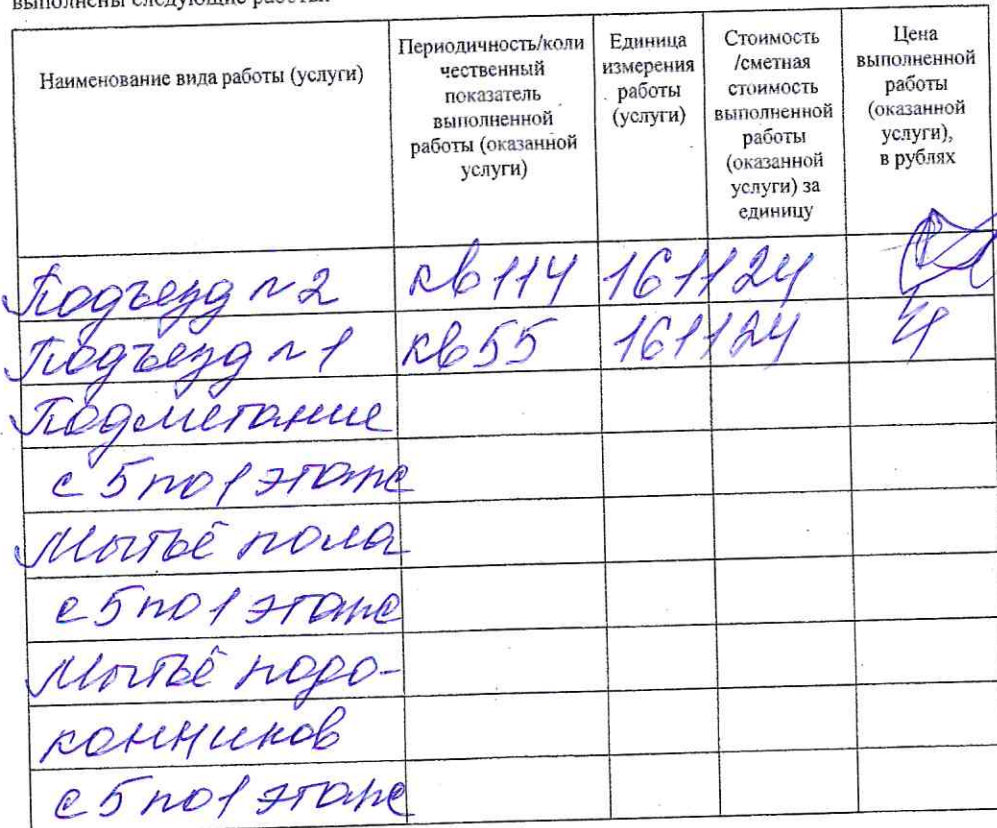 выполнены следующие работы:
Наименование вида работы (услуги)
Периодичность/коли
чественный
показатель
выполненной
работы (оказанной
услуги)
Единица
измерения
работы
(услуги)
Стоимость
/сметная
стоимость
выполненной
работы
(оказанной
услуги) за
единицу
Цена
выполненной
работы
(оказанной
услуги),
в рублях
Подъезд №2 кв 114 161124
Подъезд №1 кв 55 161124
Подметание
с 5 по 1 этаж
Мытьё пола
с 5 по 1 этаж
Мытьё подо-
конников
с 5 по 1 этаж